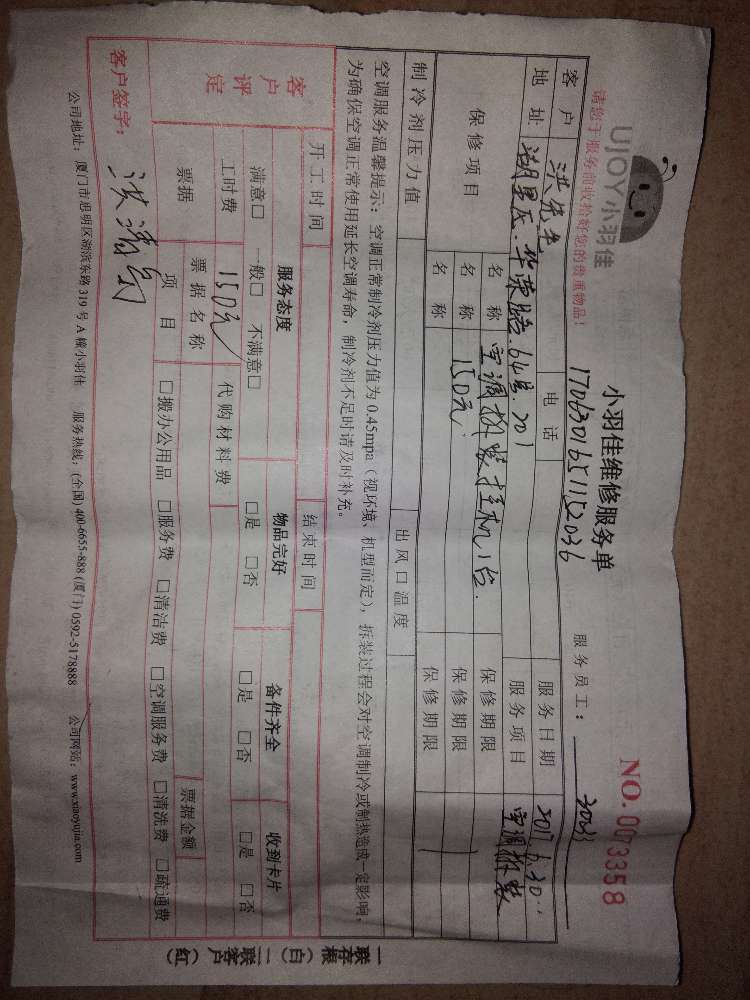 UJOY小羽佳
请您于服务前收拾好您的贵重物品!
小羽佳维修服务单
NO. 0073358
17063016511152036
服务员工:
客户 洪先生 电话 服务日期 2017.6.30
地址 湖里区.华荣路.64号 201 服务项目 空调拆装
保修项目 名称 空调拆装挂机1台. 保修期限
名称 150元 保修期限
名称 保修期限
制冷剂压力值 出风口温度
空调服务温馨提示:空调正常制冷剂压力值为 0.45mpa(视环境、机型而定),拆装过程会对空调制冷或制热造成一定影响,
为确保空调正常使用延长空调寿命,制冷剂不足时请及时补充。
开工时间 结束时间
客户评定 服务态度 物品完好 备件齐全 收到卡片
满意□ 一般□ 不满意□ □是 □否 □是 □否 □是 □否
工时费 150元 代购材料费
票据 票据名称 票据金额
项目 □搬办公用品 □服务费 □清洁费 □空调服务费 □清洗费 □疏通费
客户签字:
公司地址:厦门市思明区湖滨东路 319 号 A 幢小羽佳 服务热线:(全国) 400-6655-888 (厦门) 0592-5178888 公司网站:www.xiaoyujia.com
一联存根(白) 二联客户(红)